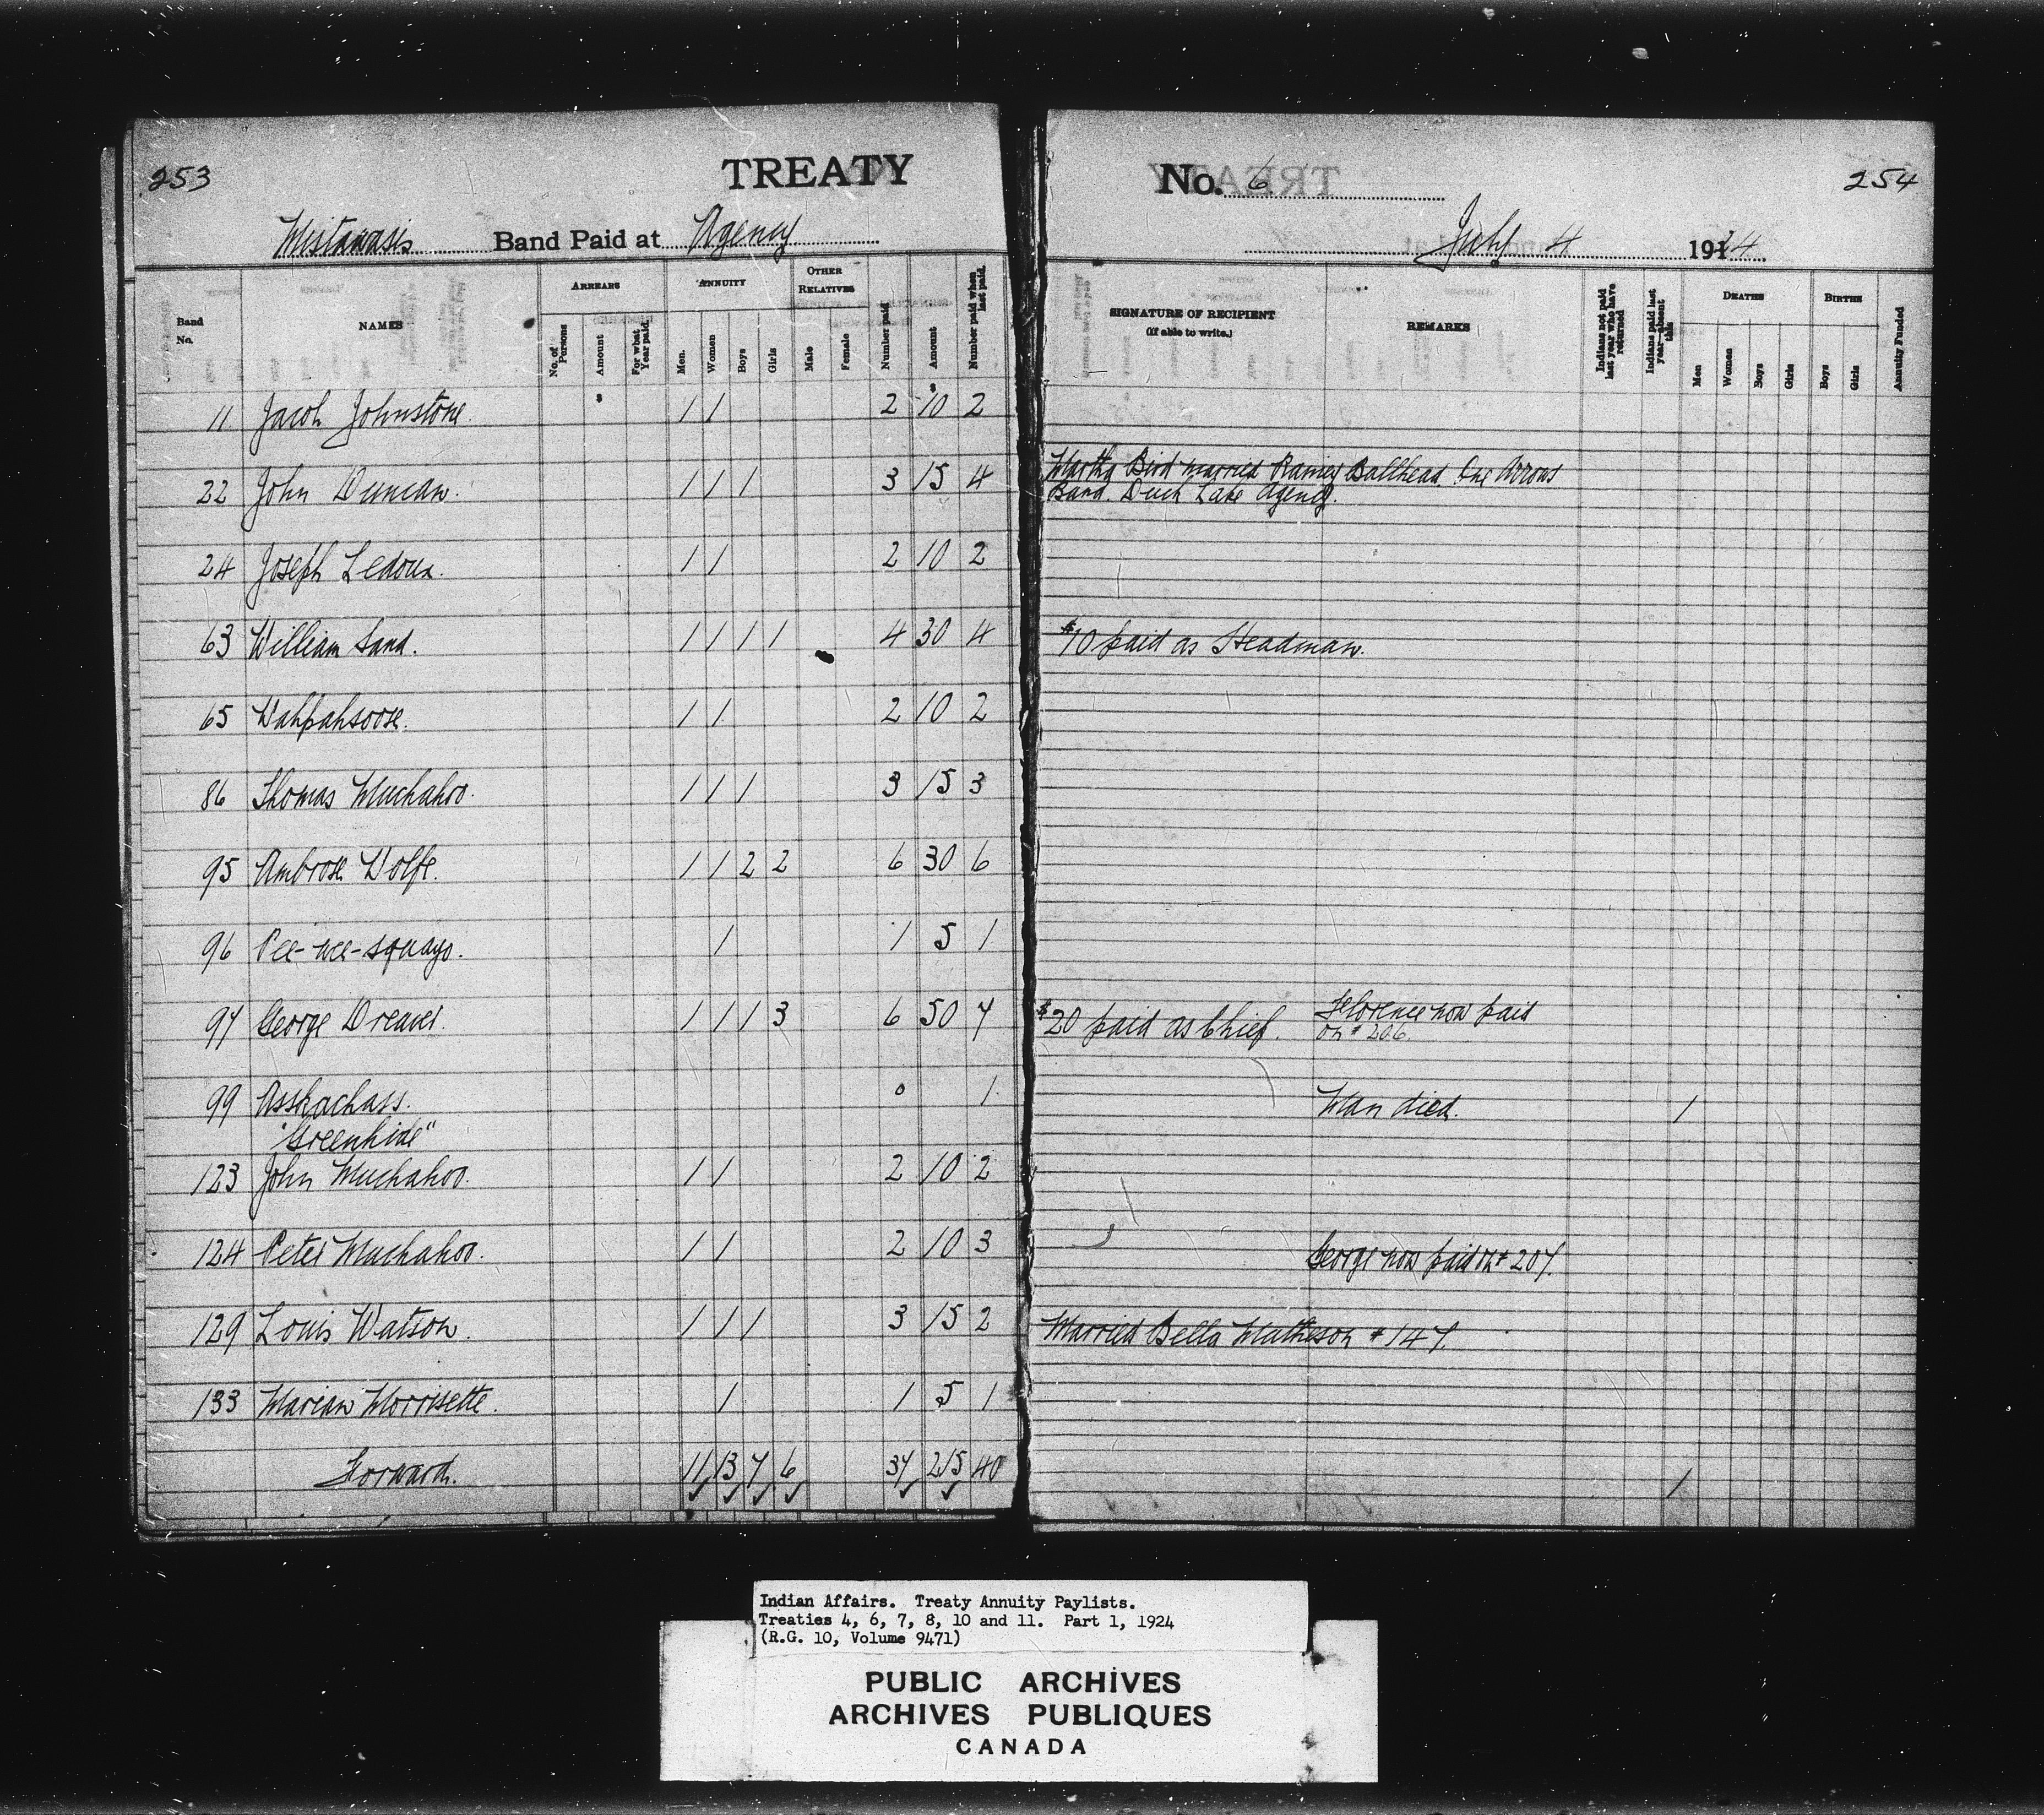 253
TREATY
Mistawasis Band Paid at Agency
Band No. NAMES ARREARS No. of Persons Amount For what Year paid. ANNUITY Men. Women Boys Girls OTHER RELATIVES Male Female Number paid Amount Number paid when last paid.
11 Jacob Johnstone. 1 1 2 10 2
22 John Duncan. 1 1 1 3 15 4
24 Joseph Ledoux. 1 1 2 10 2
63 William Sand. 1 1 1 1 4 30 4
65 Wahpahsoose. 1 1 2 10 2
86 Thomas Muchahoo. 1 1 1 3 15 3
95 Ambrose Wolfe. 1 1 2 2 6 30 6
96 Pee-wee-squayo. 1 1 5 1
97 George Dreaver. 1 1 1 3 6 50 7
99 Asskachass. 0 1
"Greenhide"
123 John Muchahoo. 1 1 2 10 2
124 Peter Muchahoo. 1 1 2 10 3
129 Louis Watson. 1 1 1 3 15 2
133 Marian Morrisette. 1 1 5 1
Forward. 11 13 7 6 37 215 40
No. 6 254
July 4 1924
SIGNATURE OF RECIPIENT (If able to write.) REMARKS Indians not paid last year who have returned Indians paid last year—absent this DEATHS Men Women Boys Girls BIRTHS Boys Girls Annuity Funded
Martha Bird married Ballhead One Arrows
Band. Duck Lake Agency.
$10 paid as Headman.
$20 paid as Chief. Florence now paid
on # 206.
Man died. 1
George now paid on # 207.
Married Bella Matheson # 147.
1
Indian Affairs. Treaty Annuity Paylists.
Treaties 4, 6, 7, 8, 10 and 11. Part 1, 1924
(R.G. 10, Volume 9471)
PUBLIC ARCHIVES
ARCHIVES PUBLIQUES
CANADA